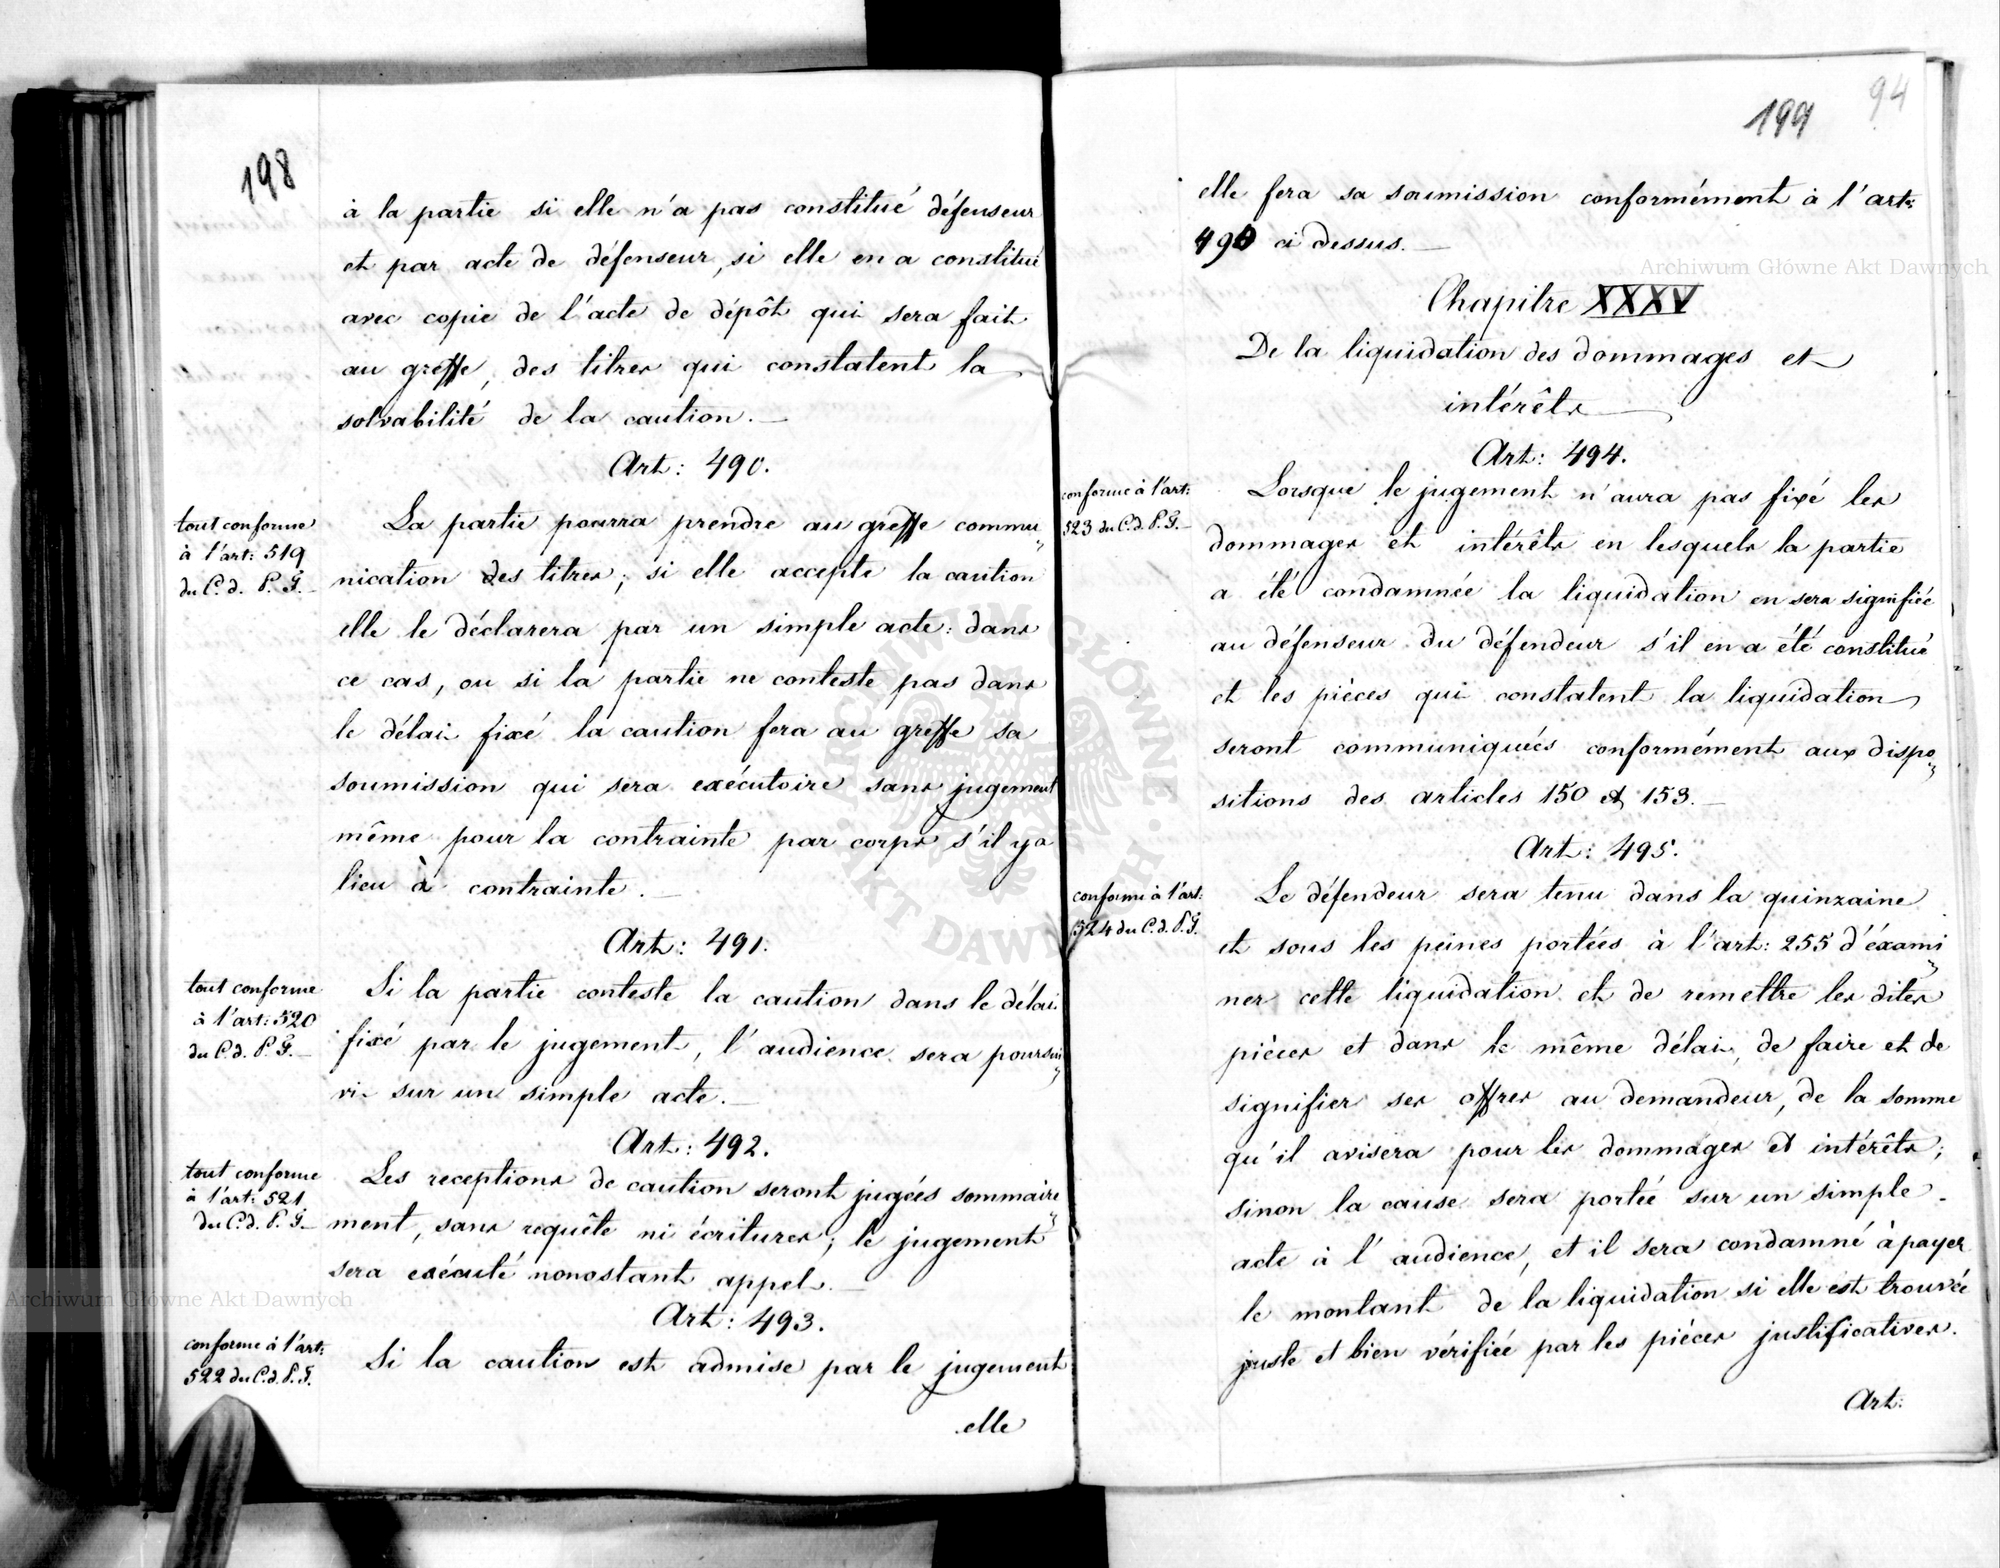 198
à la partie si elle n'a pas constitué défenseur
et par acte de défenseur, si elle en a constitué
avec copie de l'acte de dépôt qui sera fait
au greffe, des titres qui constatent la
solvabilité de la caution.
Art: 490.
tout conforme
à l'art: 519
du C. d. P. G.
La partie pourra prendre au greffe commu„
nication des titres; si elle accepte la caution
elle le déclarera par un simple acte: dans
ce cas, ou si la partie ne conteste pas dans
le délai fixé la caution fera au greffe sa
soumission qui sera exécutoire sans jugement
même pour la contrainte par corps s'il y a
lieu à contrainte.
Art: 491.
tout conforme
à l'art: 520
du C. d. P. G.
Si la partie conteste la caution dans le délai
fixé par le jugement, l'audience sera poursui„
vie sur un simple acte.
Art: 492.
tout conforme
à l'art: 521
du C. d. P. G.
Les receptions de caution seront jugées sommaire„
ment, sans requête ni écritures; le jugement
sera exécuté nonostant appel.
Art: 493.
conforme à l'art:
522 du C. d. P. G.
Si la caution est admise par le jugement
elle
94
199
elle fera sa soumission conformément à l'art:
490 ci dessus.
Chapitre XXXV
De la liquidation des dommages et
intérêts
Art: 494.
conforme à l'art:
523 du C. d. P. G.
Lorsque le jugement n'aura pas fixé les
dommages et intérêts en lesquels la partie
a été condamnée la liquidation en sera signifiée
au défenseur du défendeur s'il en a été constitué
et les pièces qui constatent la liquidation
seront communiqués conformément aux dispo„
sitions des articles 150 et 153.
Art: 495.
conforme à l'art:
524 du C. d. P. G.
Le défendeur sera tenu dans la quinzaine
et sous les peines portées à l'art: 255 d'éxami„
ner cette liquidation et de remettre les dites
pièces et dans le même délai, de faire et de
signifier ses offres au demandeur, de la somme
qu'il avisera pour les dommages et intérêts;
sinon la cause sera portée sur un simple
acte à l'audience, et il sera condamné à payer
le montant de la liquidation si elle est trouvée
juste et bien vérifiée par les pièces justificatives.
Art:
Archiwum Główne Akt Dawnych
Archiwum Główne Akt Dawnych
ARCHIWUM GŁÓWNE · AKT DAWNYCH ·